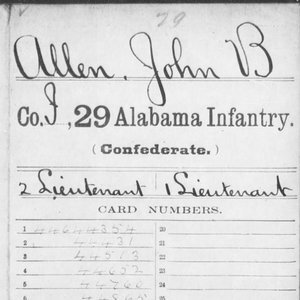 79
Allen, John B
Co. I, 29 Alabama Infantry.
(Confederate.)
2 Lieutenant | 1 Lieutenant
CARD NUMBERS.
1 44644354 20
2 44431 21
3 44513 22
4 44652 23
5 44760 24